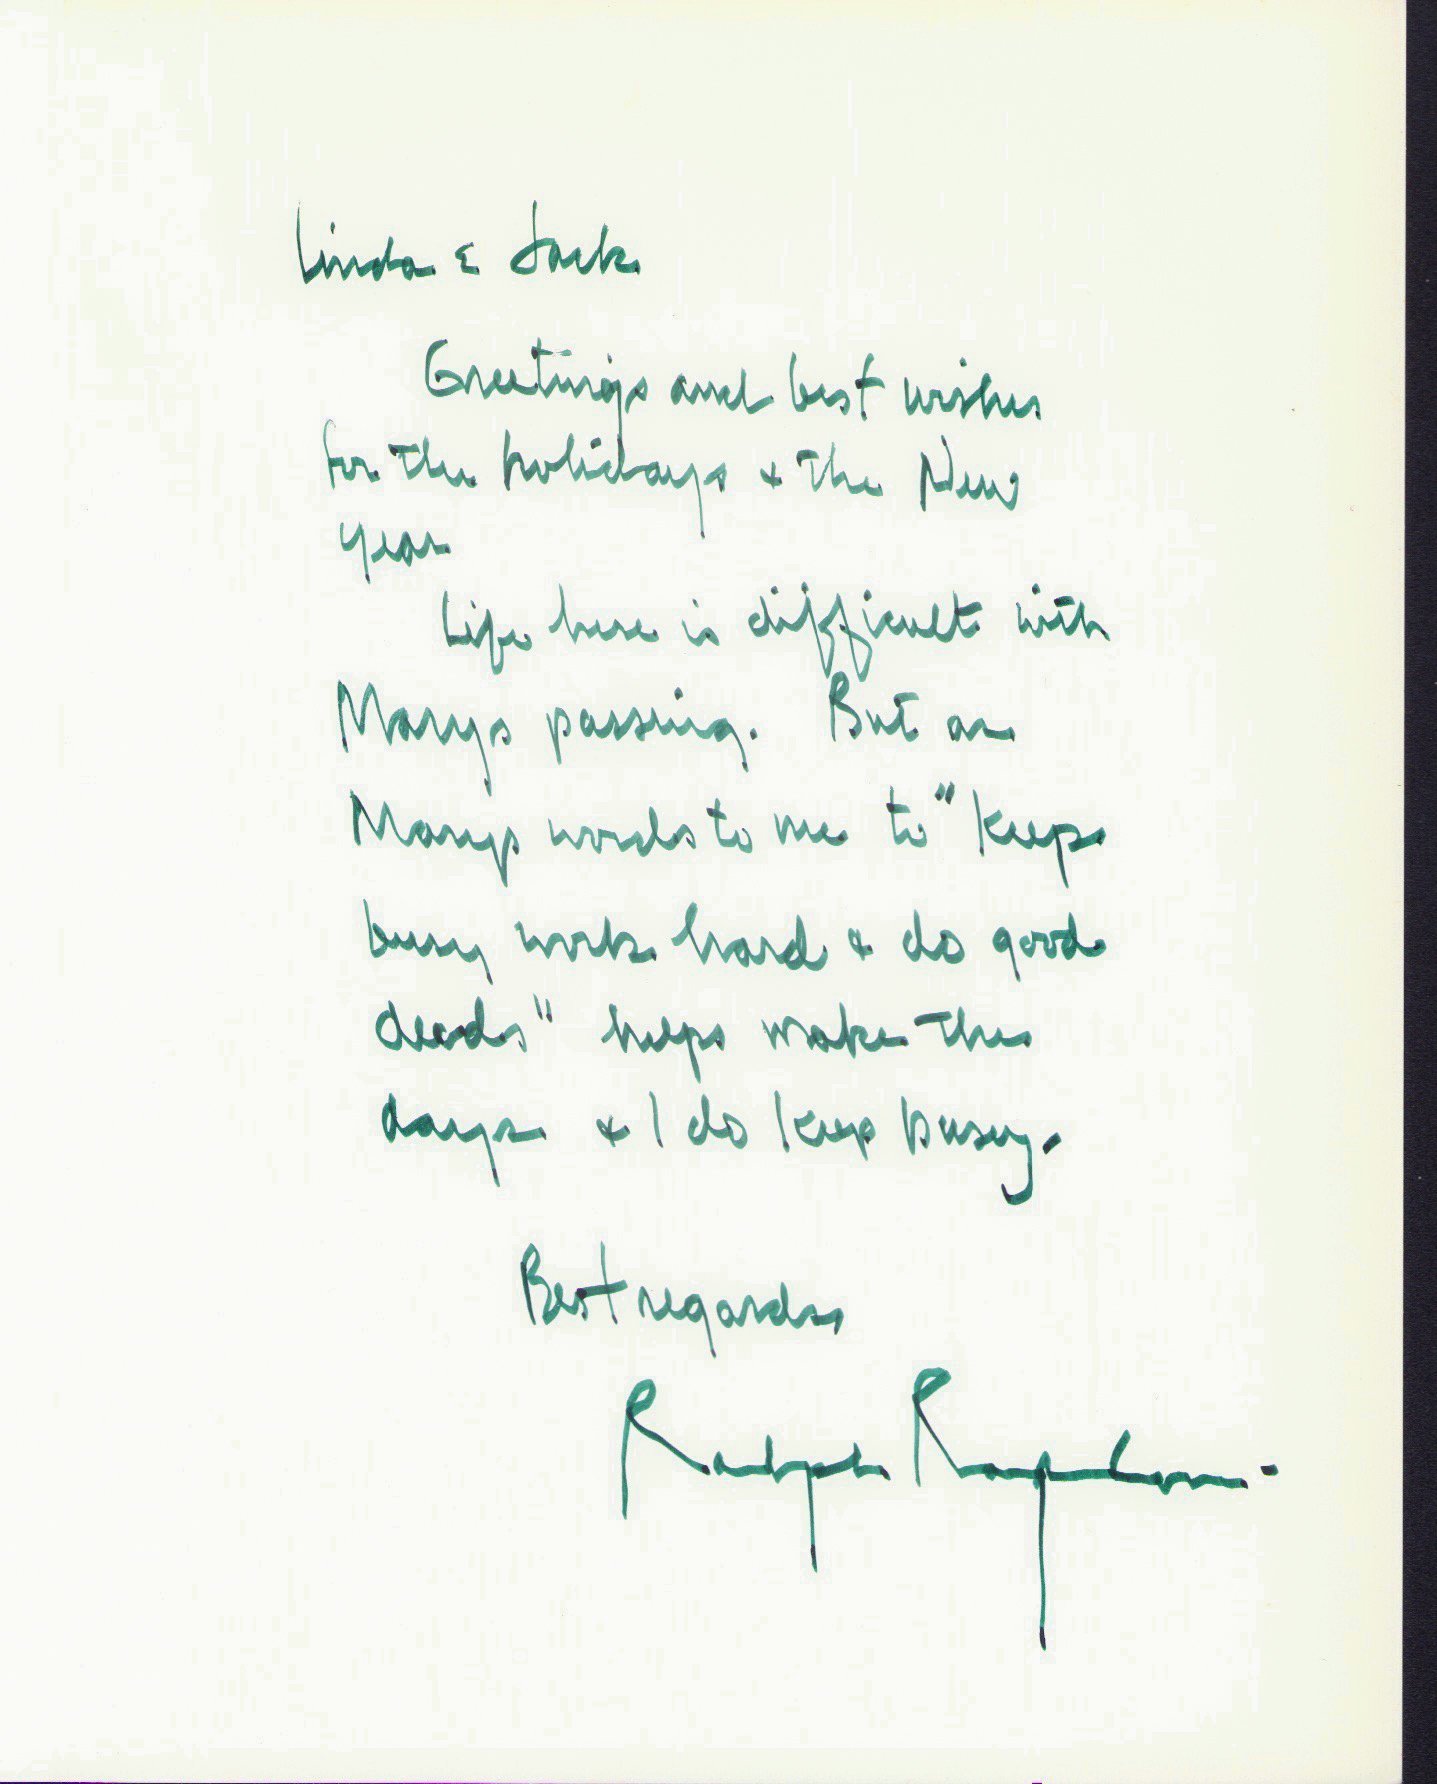 Linda & Jack
Greetings and best wishes
for the holidays & the New
Year
Life here is difficult with
Marys passing. But as
Marys words to me to "keep
busy work hard & do good
deeds" helps make the
days & I do keep busy.
Best regards
Ralph Rapson.